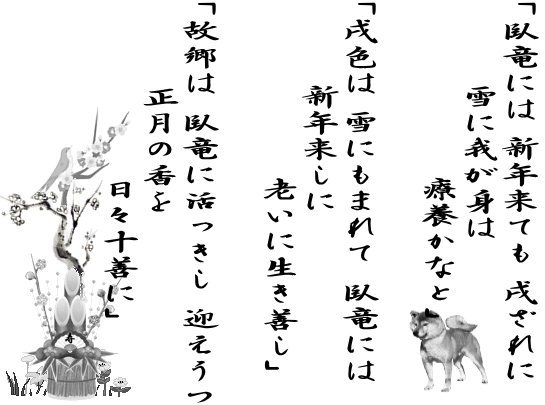 「臥竜には 新年来ても 戌ざれに
雪に我が身は
療養かなと
「戌色は 雪にもまれて 臥竜には
新年来しに
老いに生き善し」
「故郷は 臥竜に活つきし 迎えうつ
正月の香を
日々十善に」